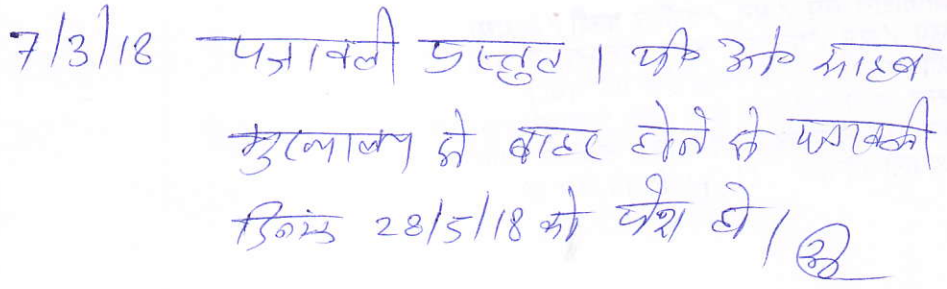 7/3/18 पत्रावली प्रस्तुत । पी० ओ० साहब
मुख्यालय से बाहर होने से पत्रावली
दिनांक 28/5/18 को पेश हो ।